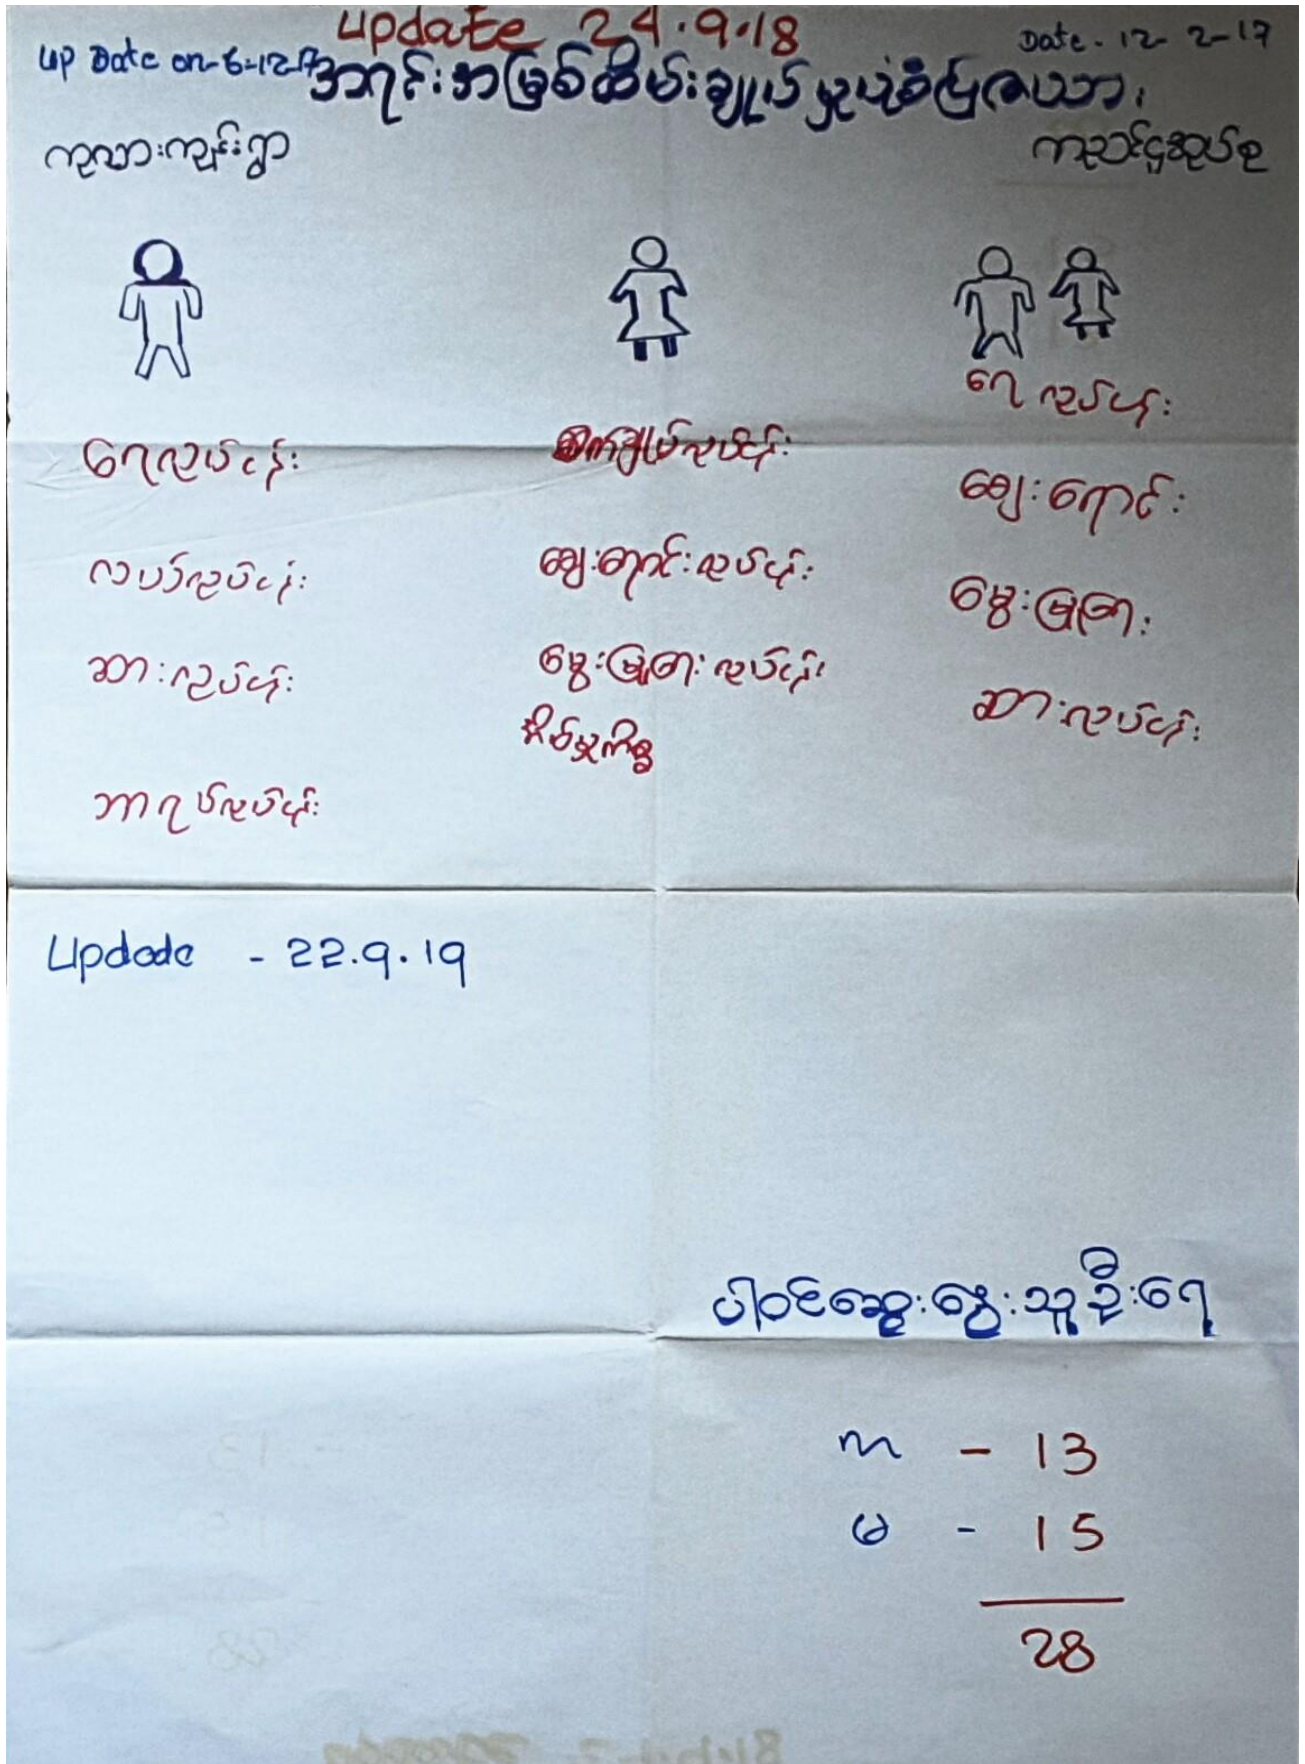 update 24.9.18
up Date on-6-12-17
Date - 12-2-17
အရင်းအမြစ်ထိမ်းချုပ်မှုပုံစံပြဇယား
ကုလားကျင်းရွာ
ကညင်ဌအုပ်စု
ရေလုပ်ငန်း
လယ်လုပ်ငန်း
ဆားလုပ်ငန်း
ဘာရပ်လုပ်ငန်း
စက်ချုပ်လုပ်ငန်း
ဈေးရောင်းလုပ်ငန်း
မွေးမြူရေးလုပ်ငန်း
အိမ်မှုကိစ္စ
ရေလုပ်ငန်း
ဈေးရောင်း
မွေးမြူရေး
ဆားလုပ်ငန်း
Update - 22.9.19
ပါဝင်ဆွေးနွေးသူဦးရေ
ကာ - 13
မ - 15
28